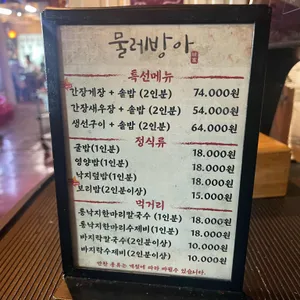 물레방아
특선메뉴
간장게장 + 솥밥 (2인분) 74.000원
간장새우장 + 솥밥 (2인분) 54.000원
생선구이 + 솥밥 (2인분) 64.000원
정식류
굴밥(1인분) 18.000원
영양밥(1인분) 18.000원
낙지덮밥(1인분) 18.000원
보리밥(2인분이상) 15.000원
먹거리
통낙지한마리칼국수(1인분) 18.000원
통낙지한마리수제비(1인분) 18.000원
바지락칼국수(2인분이상) 10.000원
바지락수제비(2인분이상) 10.000원
반찬 종류는 계절에 따라 바뀔수 있습니다.